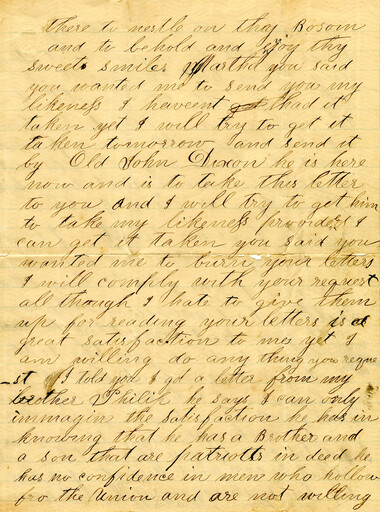 there to nestle on thy Bosom
and to behold and Enjoy thy
sweet smiles Martha you said
you wanted me to send you my
likeness I haveent had it
taken yet I will try to get it
taken tomorrow and send it
by Old John Dixon he is here
now and is to take this letter
to you and I will try to get him
to take my likeness provided I
can get it taken you said you
wanted me to burn your letters
I will comply with your request
all though I hate to give them
up for reading your letters is a
great satisfaction to me yet I
am willing do any thing you reque
-st I told you I got a letter from my
brother Philik he says I can only
immagin the satisfaction he has in
knowing that he has a Brother and
a son that are patriotts in deed he
has no confidence in men who hollow
fro the Union and are not willing